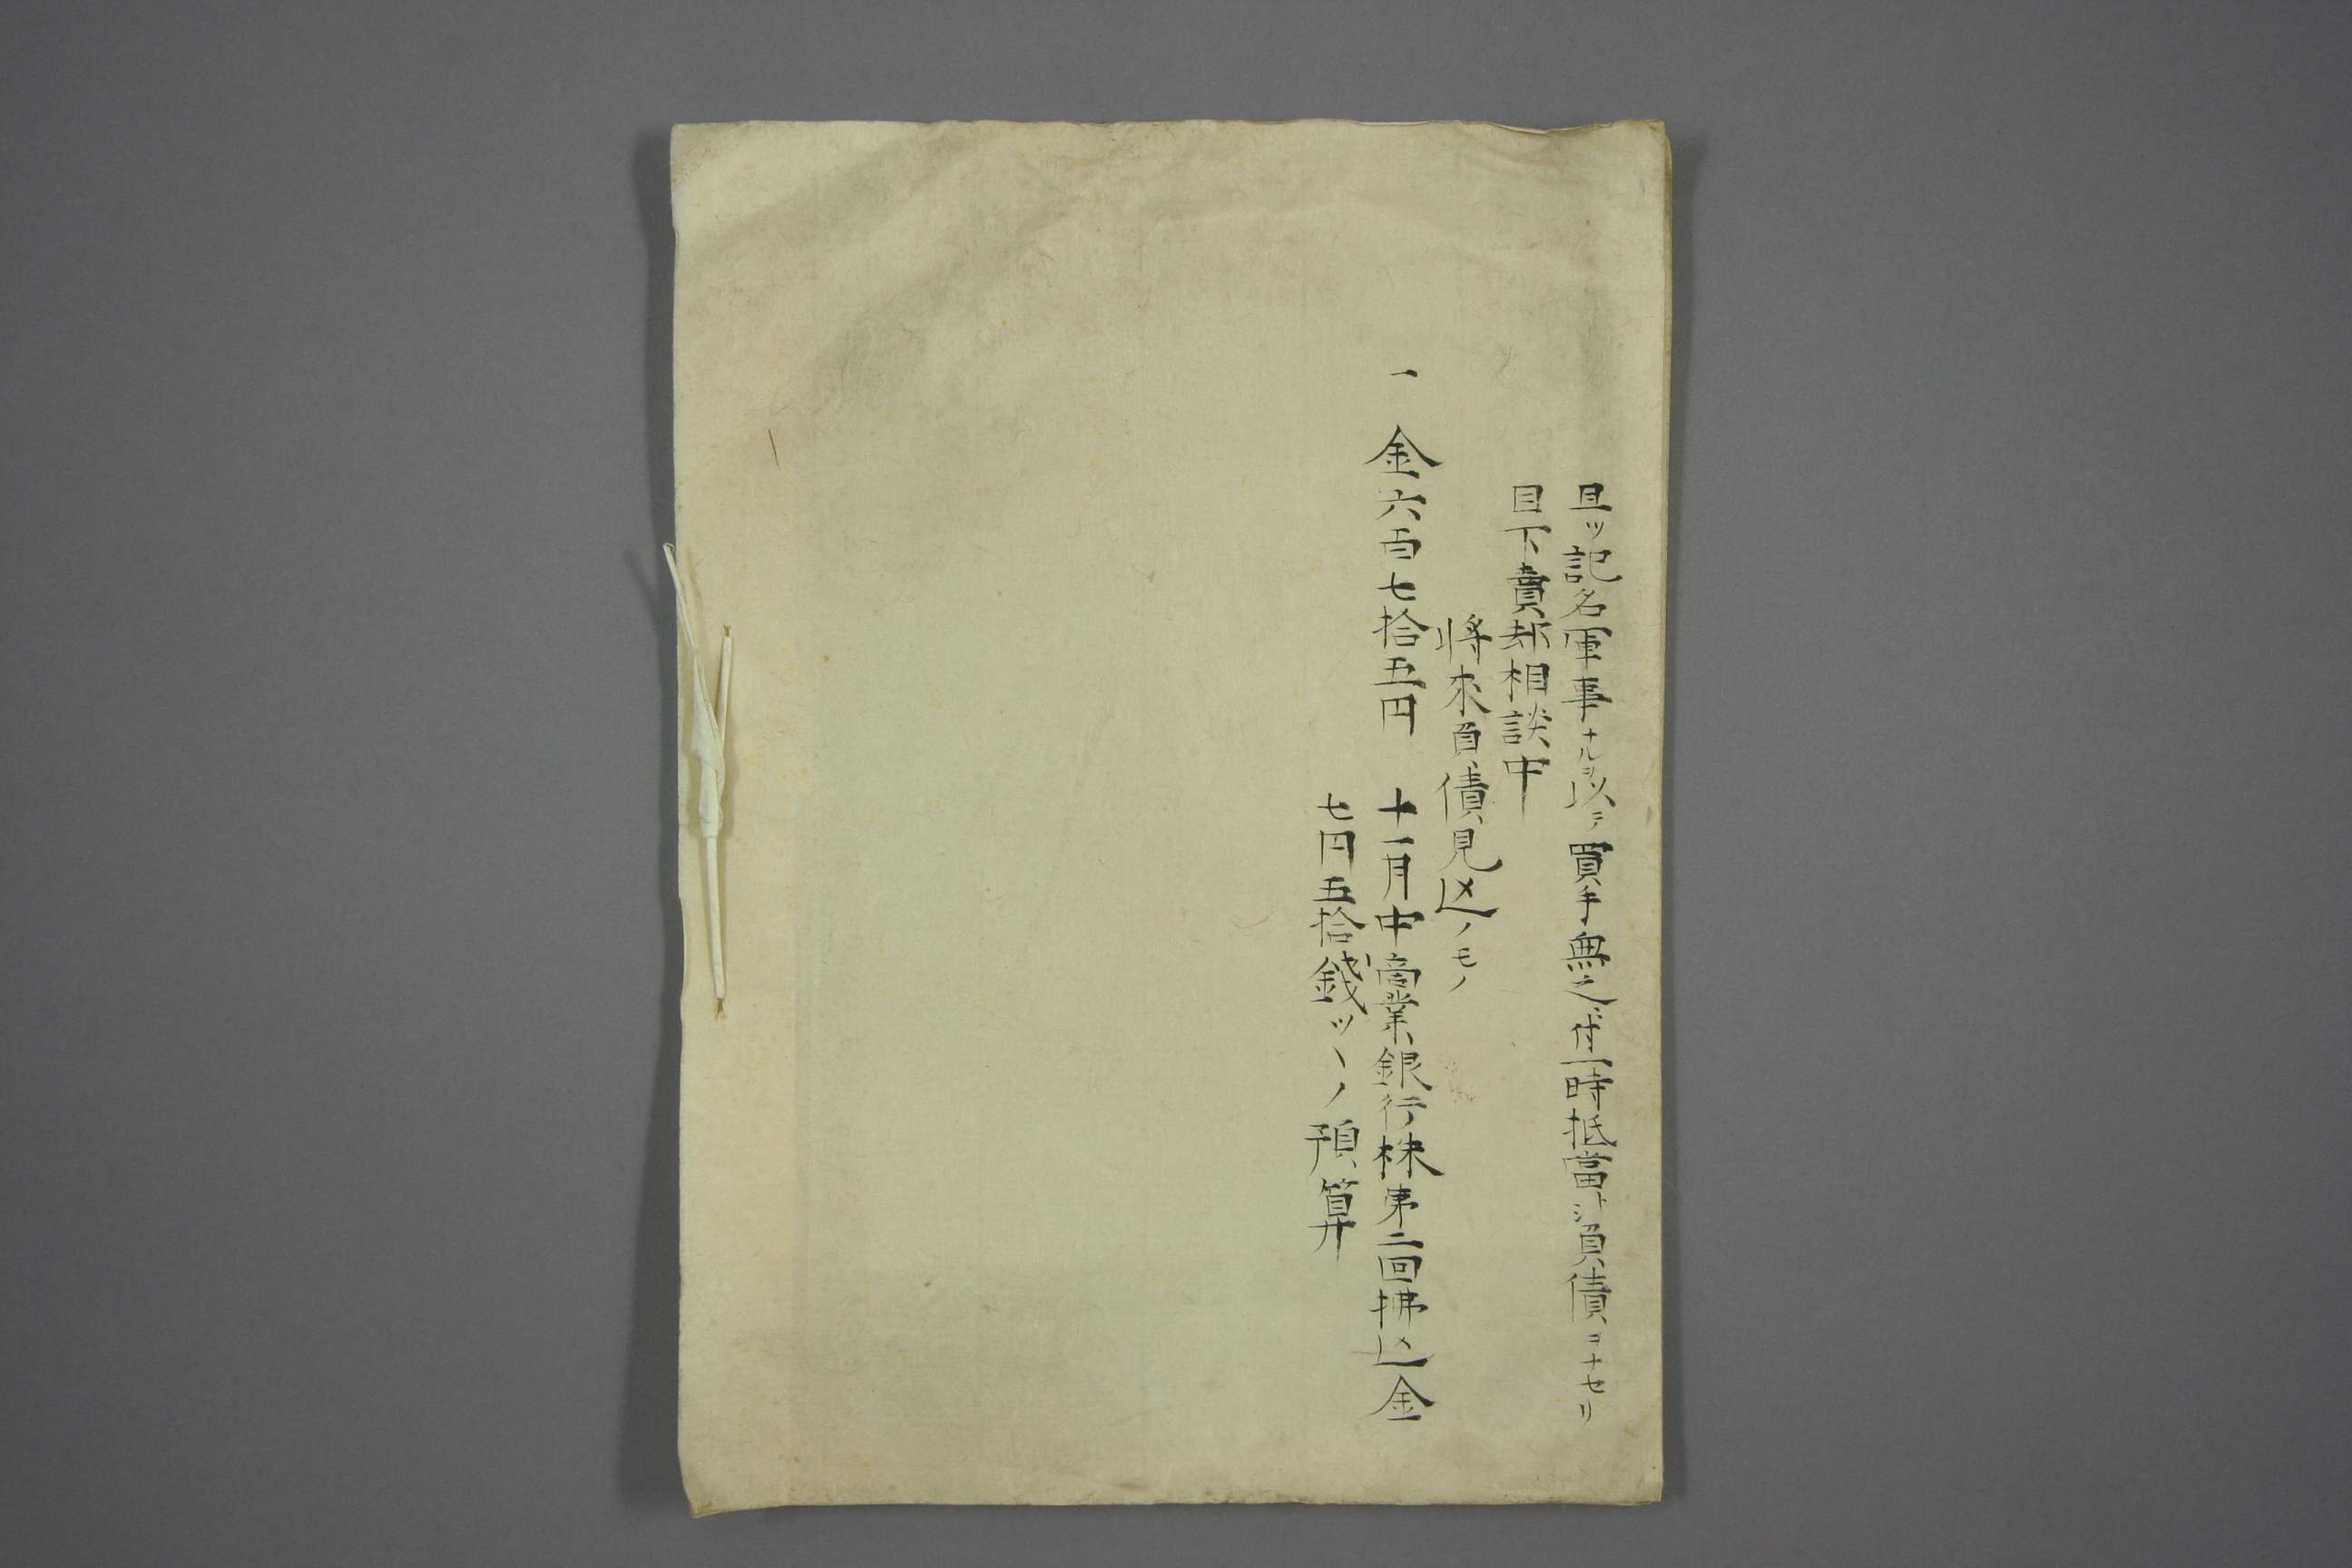 且ツ記名軍事ナルヲ以テ買手無之ニ付一時抵當トシ負債ヲナセリ
目下賣却相談中
將來負債見込ノモノ
一 金六百七拾五円 十一月中商業銀行株第二回拂込金
七円五拾錢ツヽノ預算